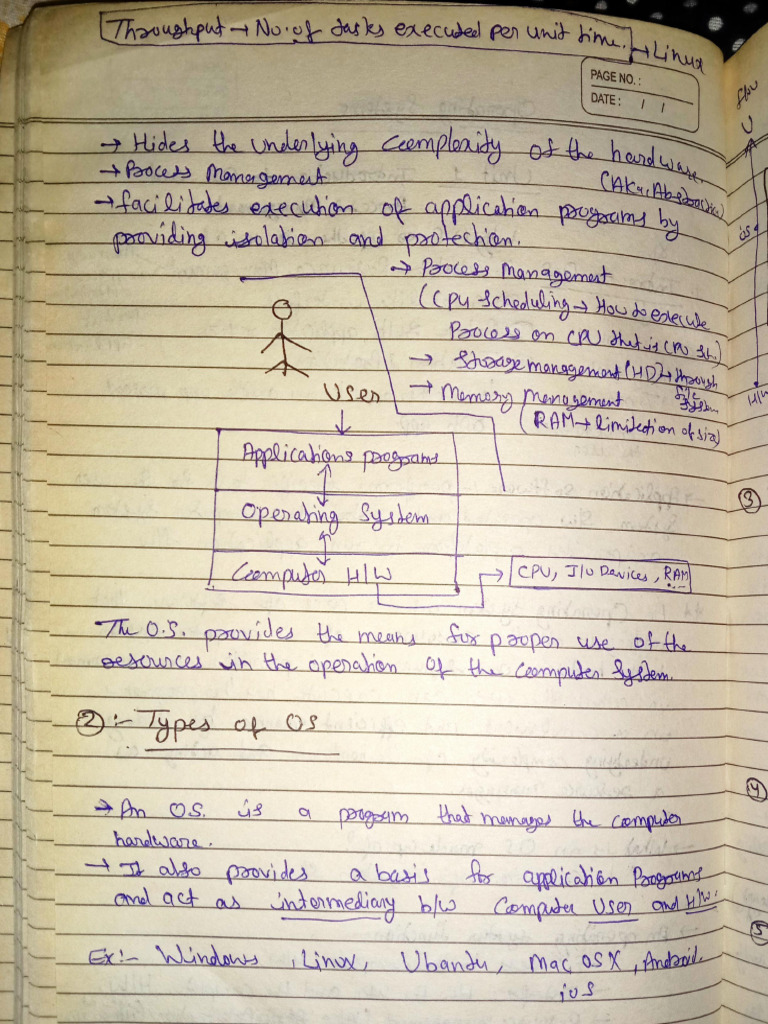 Throughput → No. of tasks executed per unit time. → Linux
PAGE NO. :
DATE : / /
→ Hides the underlying complexity of the hardware.
(AKA. Abstraction)
→ Process Management
→ facilitates execution of application programs by
providing isolation and protection.
→ Process Management
(CPU Scheduling → How to execute
Process on CPU that is CPU Sh.)
→ Storage management (HD) → through
file
System
→ Memory Management
(RAM → limitation of size)
User
Applications programs
Operating System
Computer H/W
CPU, I/O Devices, RAM
The O.S. provides the means for proper use of the
resources in the operation of the Computer System.
② :- Types of OS
→ An OS. is a program that manages the computer
hardware.
→ It also provides a basis for application Programs
and act as intermediary b/w Computer User and H/W.
Ex:- Windows, Linux, Ubantu, Mac OSX, Android.
ios
U
os
H/W
③
④
⑤